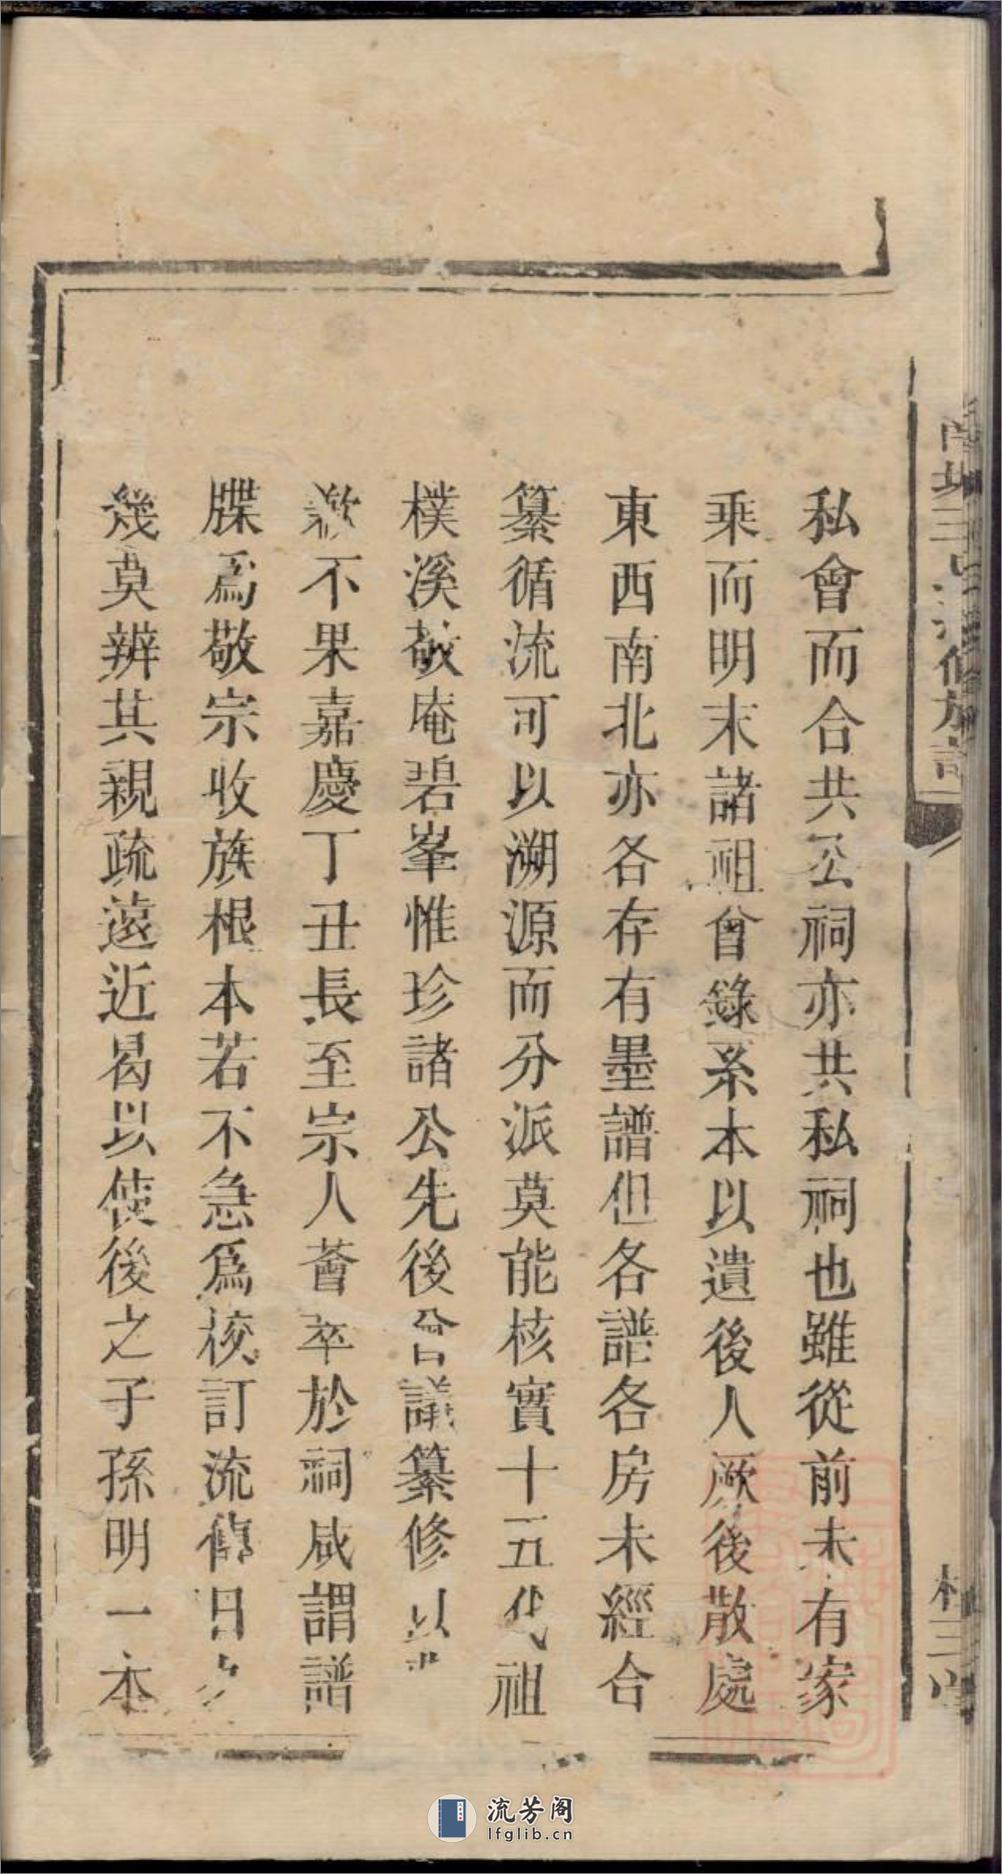 私會而合共公祠亦共私祠也雖從前未有家
乘而明末諸祖曾錄系本以遺後人厥後散處
東西南北亦各存有墨譜但各譜各房未經合
纂循流可以溯源而分派莫能核實十五代祖
樸溪敬庵碧峯惟珍諸公先後曾議纂修以
歉不果嘉慶丁丑長至宗人薈萃於祠咸謂譜
牒爲敬宗收族根本若不急爲核訂流傳日久
幾莫辨其親疏遠近曷以使後之子孫明一本
修族譜
流芳阁
lfglib.cn